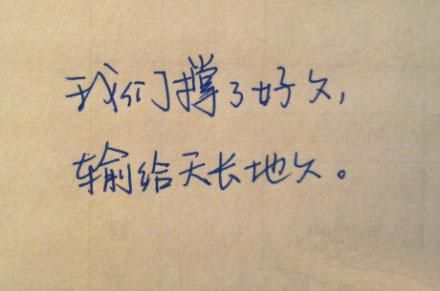 我们撑了好久，
输给天长地久。